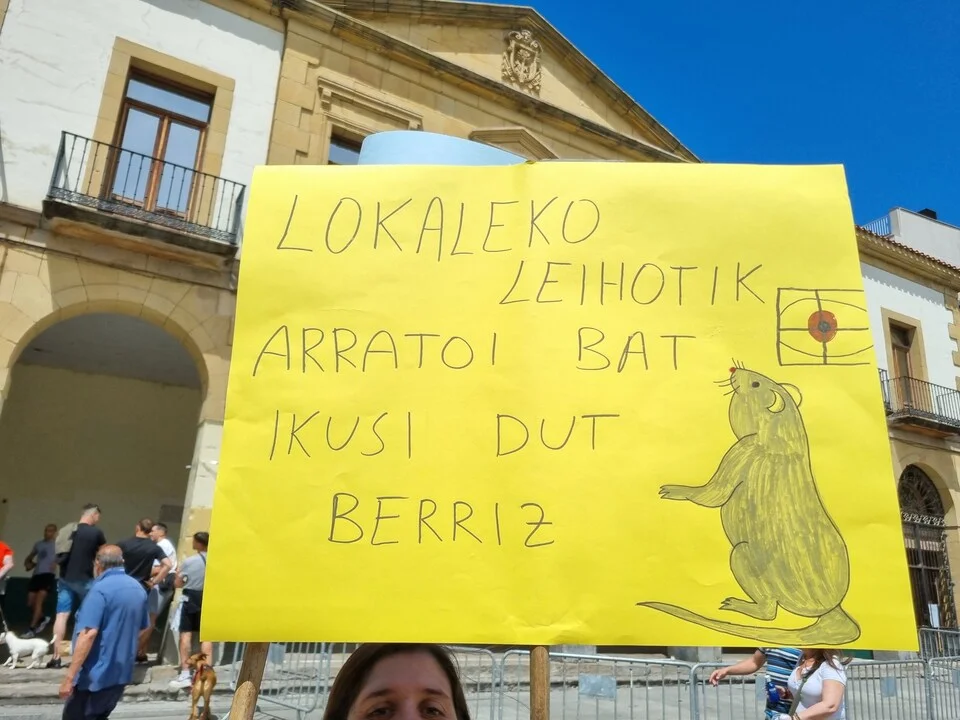 LOKALEKO
LEIHOTIK
ARRATOI BAT
IKUSI DUT
BERRIZ